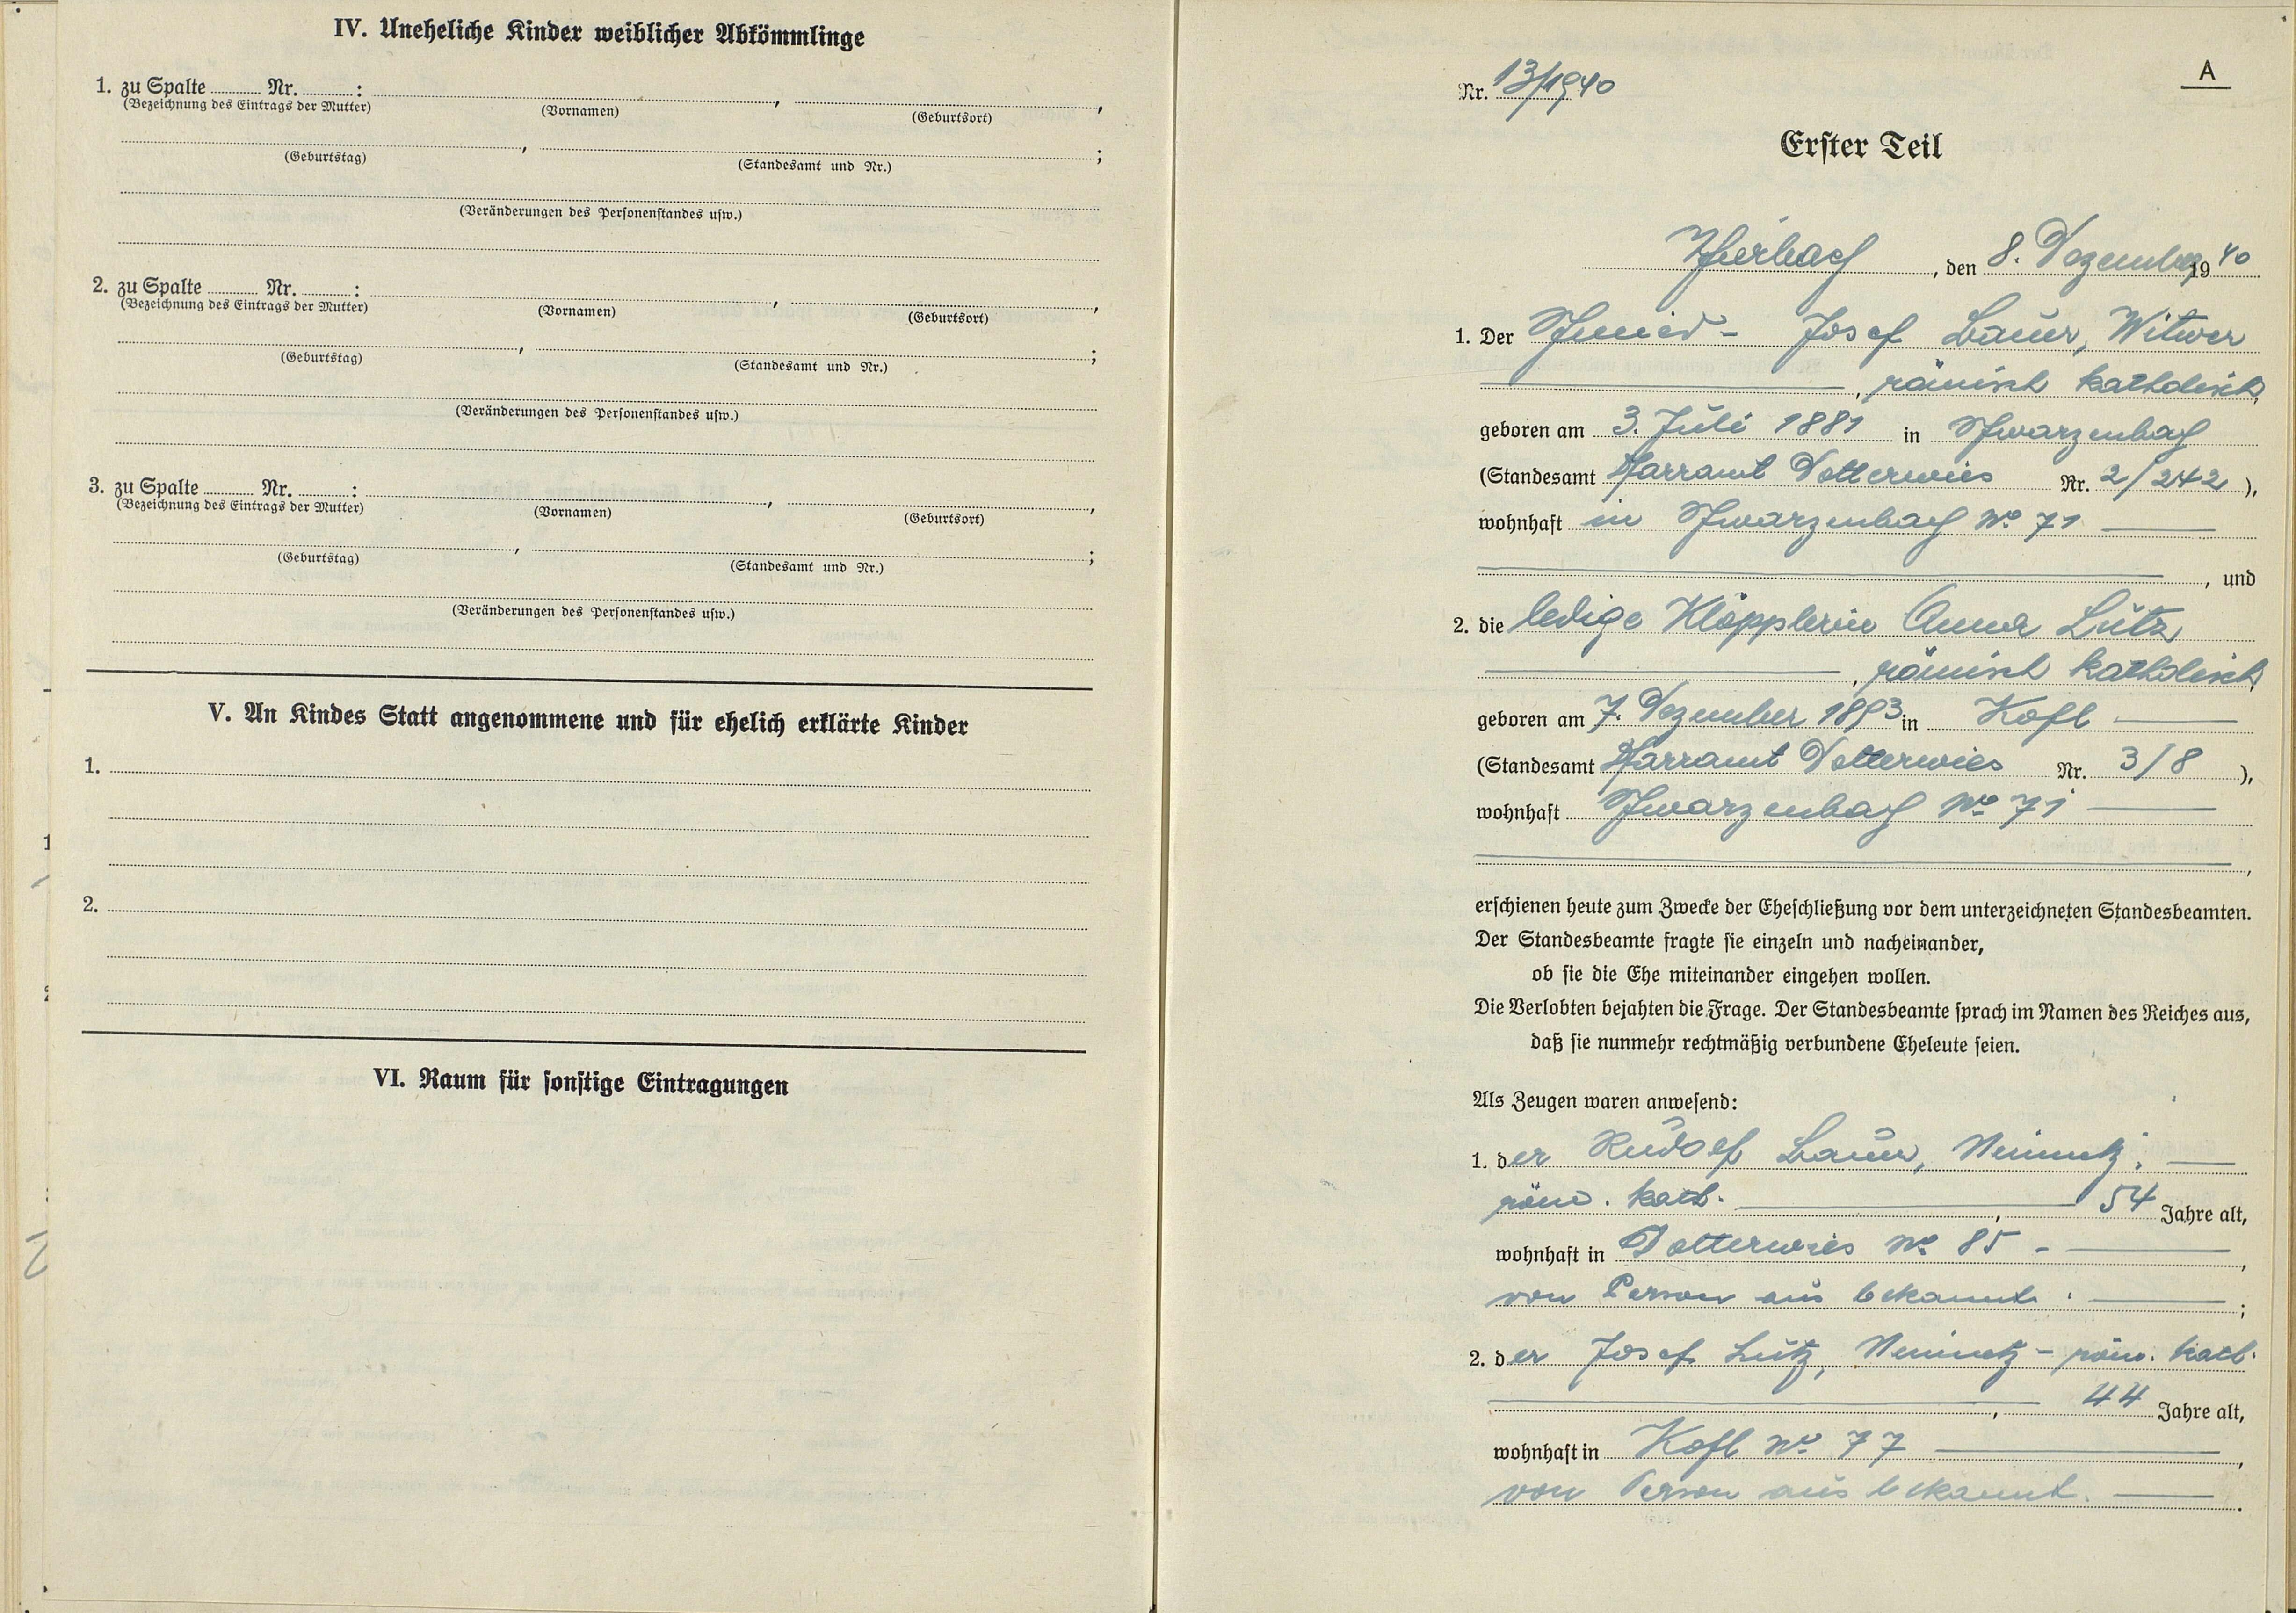 IV. Uneheliche Kinder weiblicher Abkömmlinge
1. zu Spalte ........ Nr. ........ :
(Bezeichnung des Eintrags der Mutter) (Vornamen) (Geburtsort)
(Geburtstag) (Standesamt und Nr.)
(Veränderungen des Personenstandes usw.)
2. zu Spalte ........ Nr. ........ :
(Bezeichnung des Eintrags der Mutter) (Vornamen) (Geburtsort)
(Geburtstag) (Standesamt und Nr.)
(Veränderungen des Personenstandes usw.)
3. zu Spalte ........ Nr. ........ :
(Bezeichnung des Eintrags der Mutter) (Vornamen) (Geburtsort)
(Geburtstag) (Standesamt und Nr.)
(Veränderungen des Personenstandes usw.)
V. An Kindes Statt angenommene und für ehelich erklärte Kinder
1.
2.
VI. Raum für sonstige Eintragungen
A
Nr. 13/1940
Erster Teil
, den 8. Dezember 1940
1. Der Schmied - Josef Bauer, Witwer
, römisch katholisch,
geboren am 3. Juli 1881 in Schwarzenbach
(Standesamt Pfarramt Dotterwies Nr. 2/242),
wohnhaft in Schwarzenbach No 71
, und
2. die ledige Klöpplerin Anna Lutz
, römisch katholisch,
geboren am 7. Dezember 1893 in Kofl
(Standesamt Pfarramt Dotterwies Nr. 3/8),
wohnhaft Schwarzenbach No 71
,
erschienen heute zum Zwecke der Eheschließung vor dem unterzeichneten Standesbeamten.
Der Standesbeamte fragte sie einzeln und nacheinander,
ob sie die Ehe miteinander eingehen wollen.
Die Verlobten bejahten die Frage. Der Standesbeamte sprach im Namen des Reiches aus,
daß sie nunmehr rechtmäßig verbundene Eheleute seien.
Als Zeugen waren anwesend:
1. der Rudolf Bauer,
röm. kath. , 54 Jahre alt,
wohnhaft in Dotterwies No 85 - ,
von Person aus bekannt. ;
2. der Josef Lutz, - röm. kath.
, 44 Jahre alt,
wohnhaft in Kofl No 77 ,
von Person aus bekannt. .